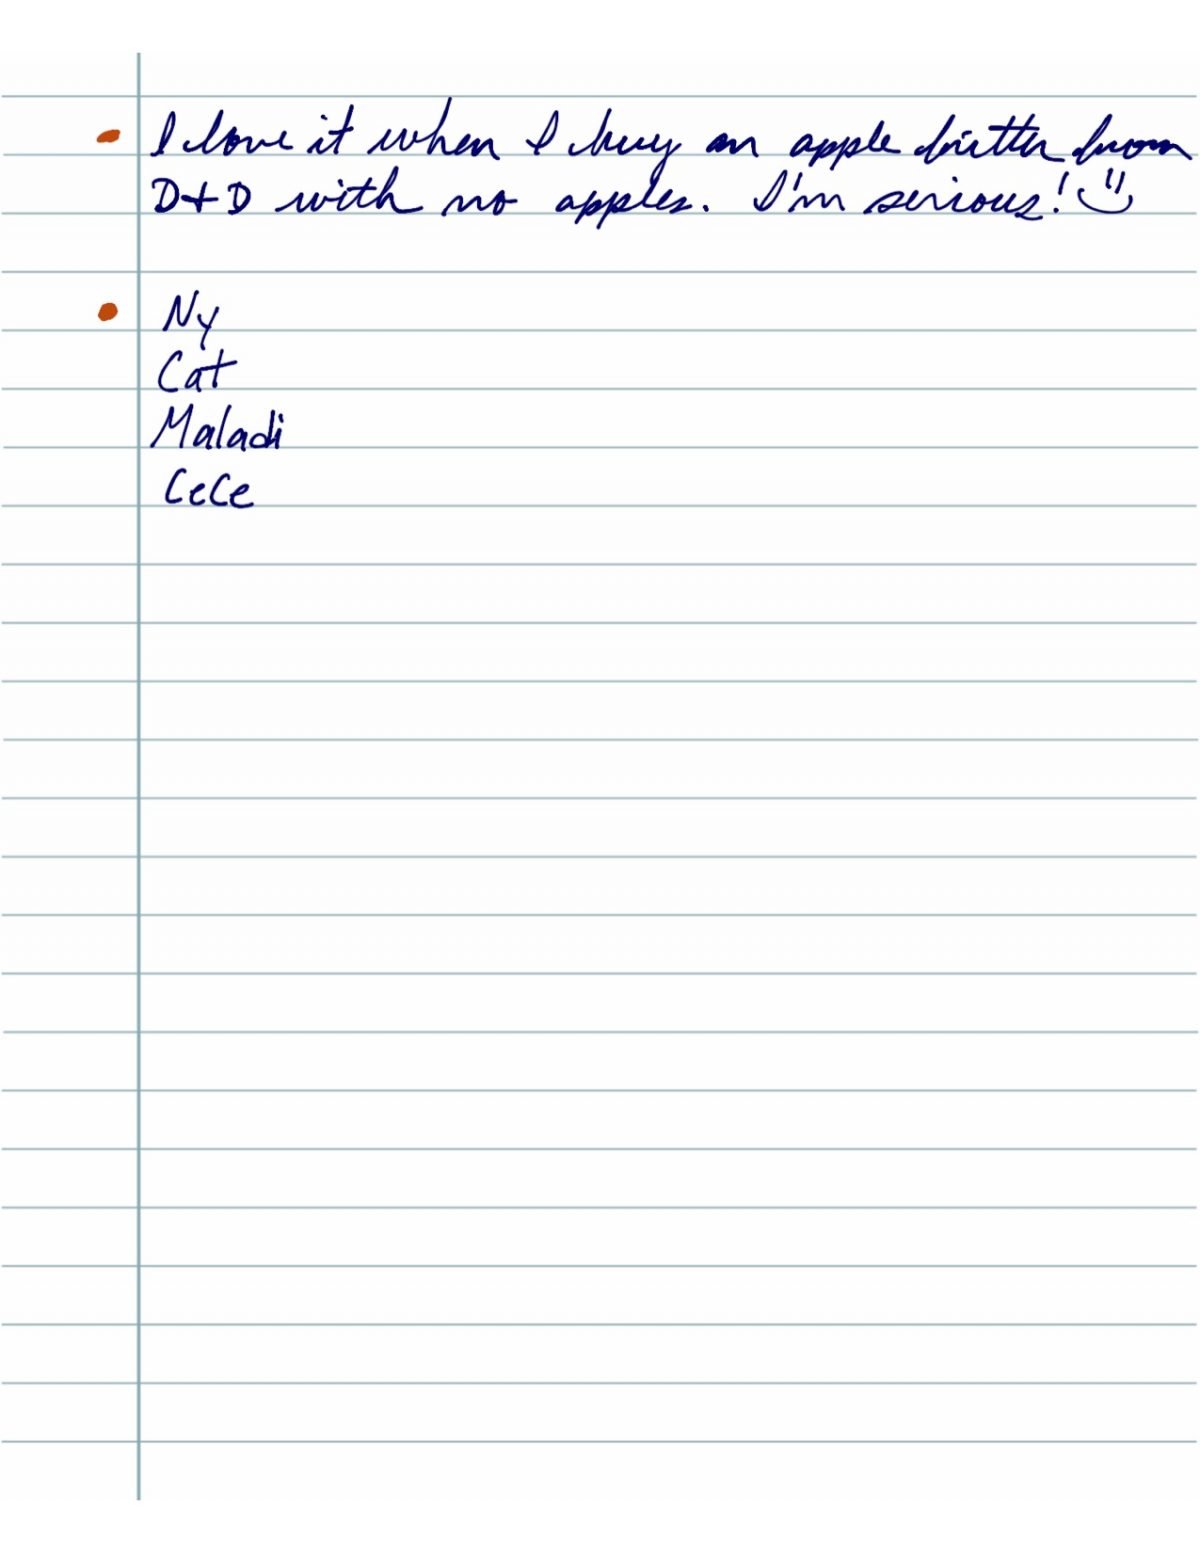 I love it when I buy an apple fritter from
D+D with no apples. I'm serious!
Ny
Cat
Maladi
CeCe